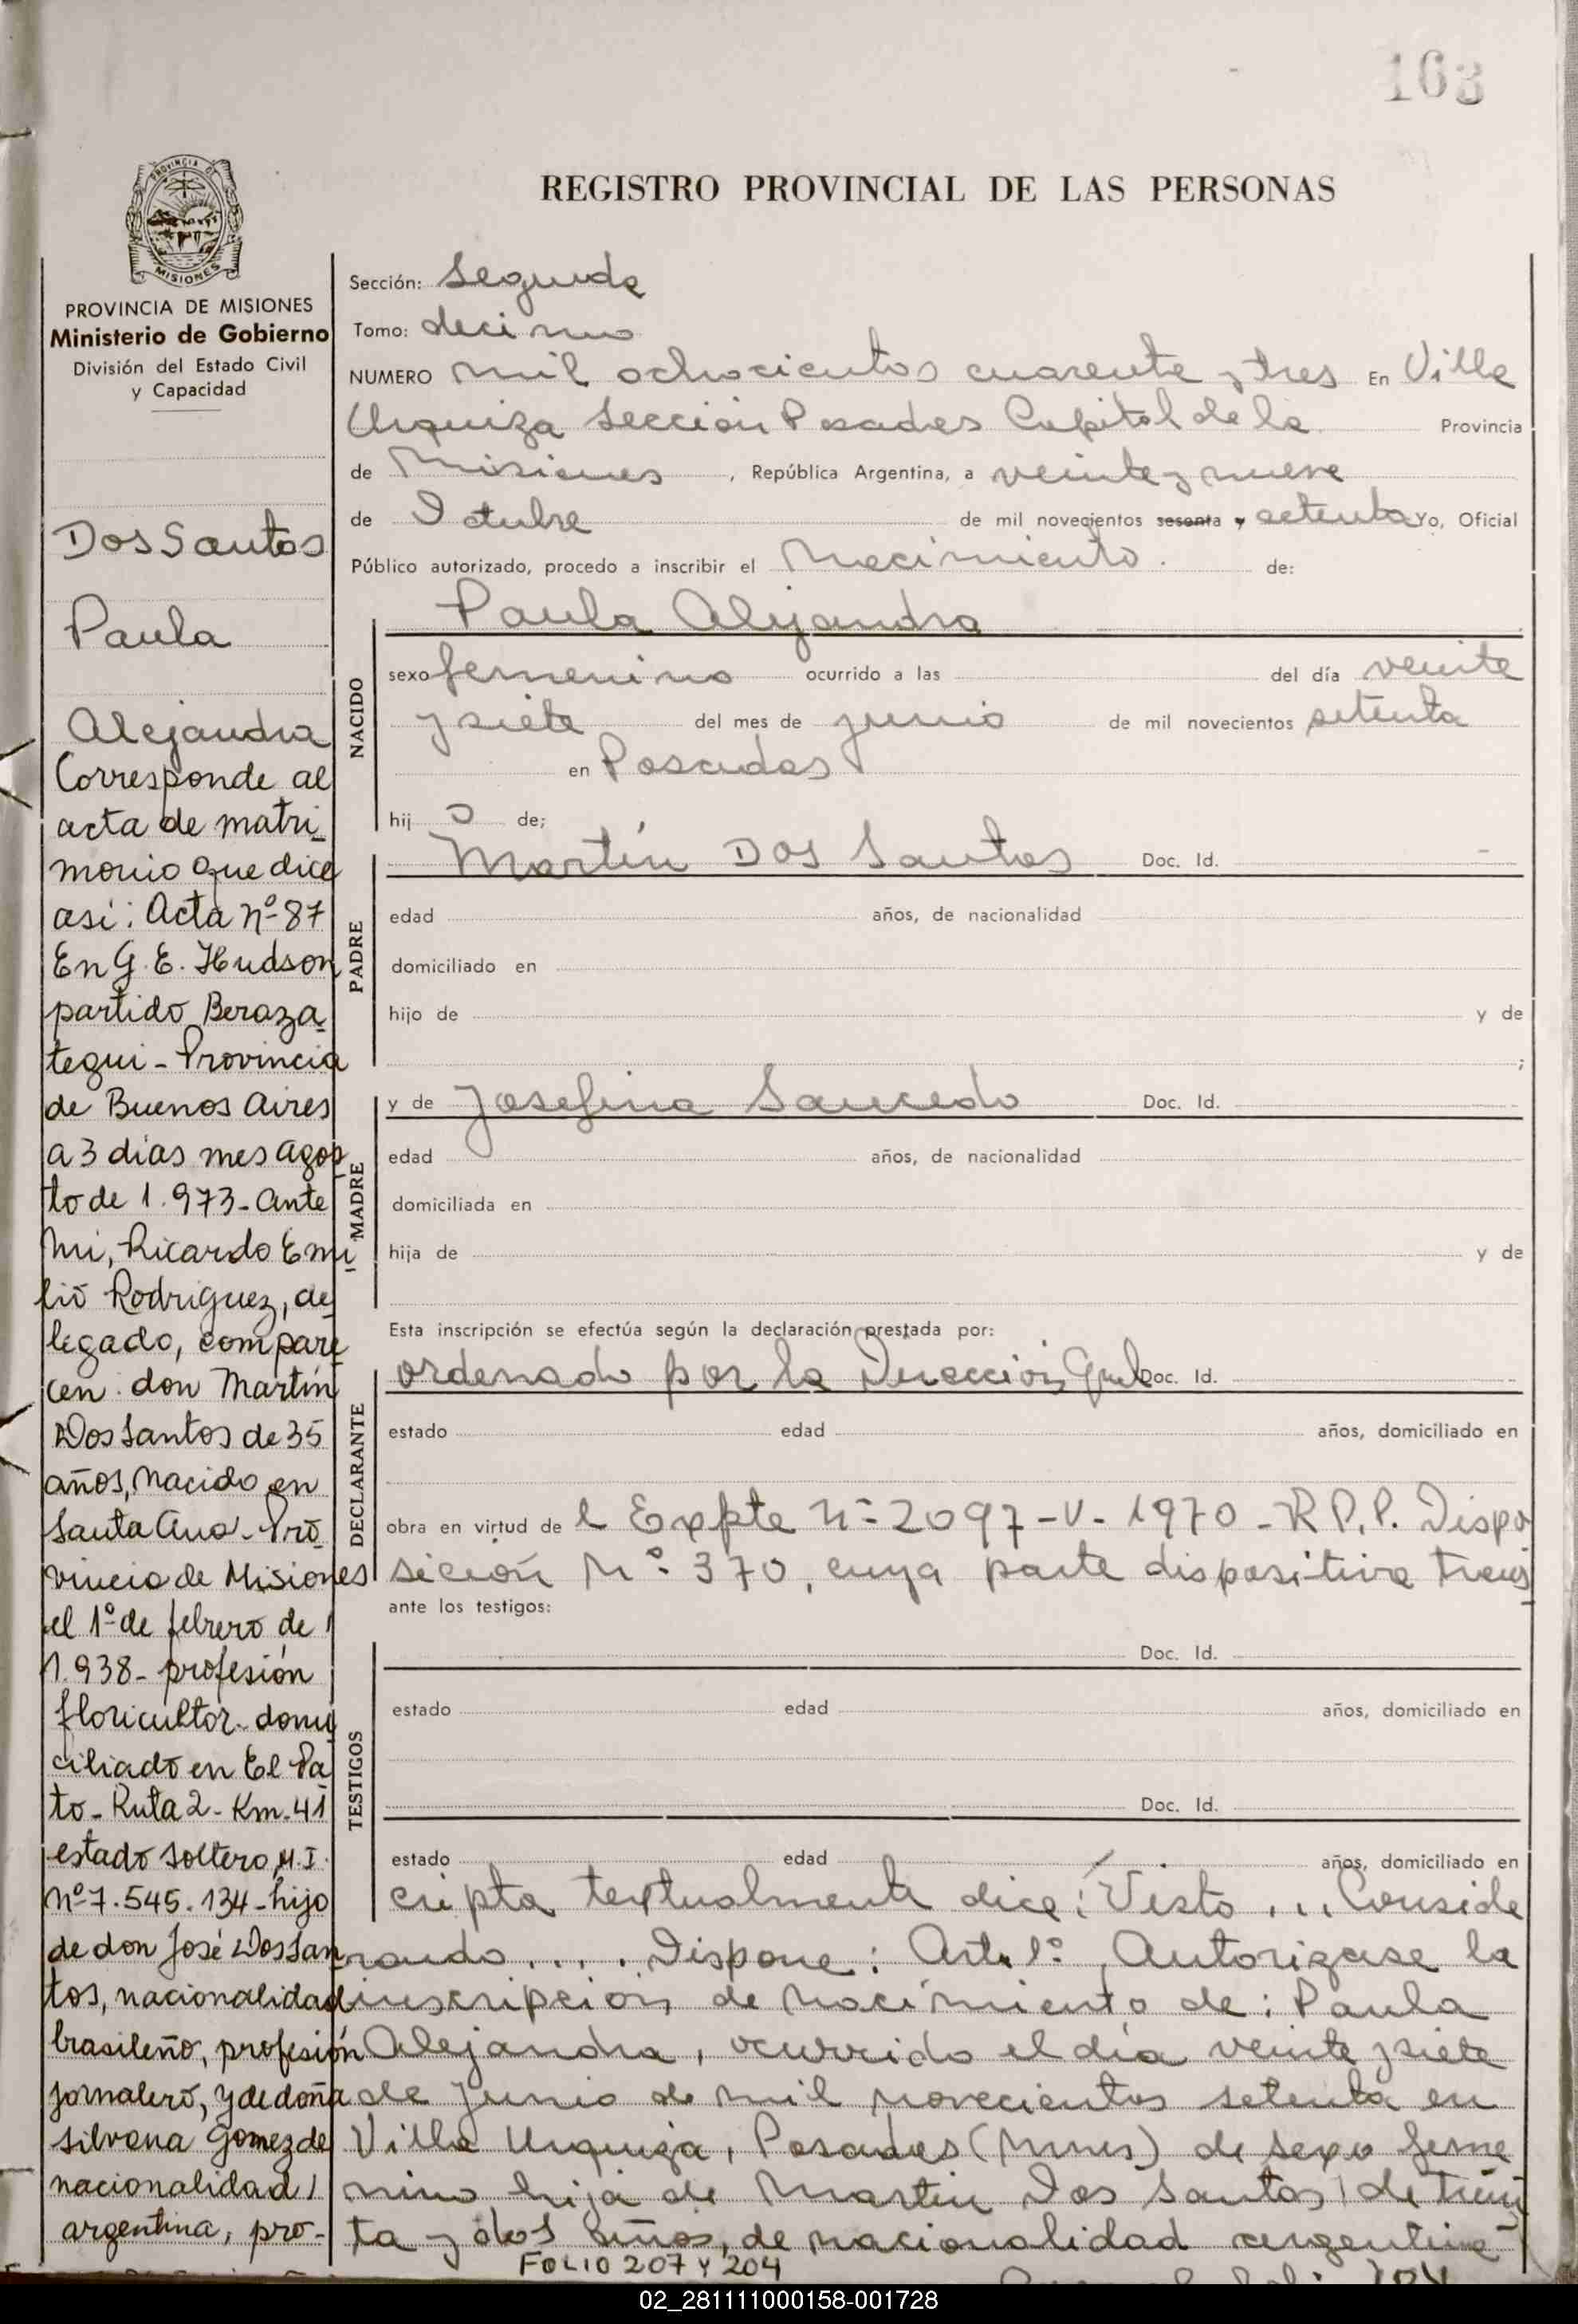 163
REGISTRO PROVINCIAL DE LAS PERSONAS
PROVINCIA DE MISIONES
PROVINCIA DE MISIONES
Ministerio de Gobierno
División del Estado Civil
y Capacidad
Dos Santos
Paula
Alejandra
Corresponde al
acta de matri
monio que dice
asi: Acta nº 87
En G. E. Hudson
partido Beraza
tegui - Provincia
de Buenos Aires
a 3 dias mes agos
to de 1.973 - ante
mi, Ricardo Emi
lio Rodriguez, de
legado, compare
cen don Martín
Dos Santos de 35
años, nacido en
Santa Ana - Pro
vincia de Misiones
el 1º de febrero de
1.938 - profesión
floricultor - domi
ciliado en El Pa
to - Ruta 2 - Km. 41
estado soltero M.I.
Nº 7.545.134 - hijo
de don José Dos San
tos, nacionalidad
brasileño, profesión
jornalero, y de doña
Silvana Gomez de
nacionalidad
argentina, pro-
Sección: Segunda
Tomo: decimo
NUMERO mil ochocientos cuarenta y tres En Villa
Urquiza Sección Posadas Capital de la Provincia
de Misiones, República Argentina, a veinte y nueve
de Octubre de mil novecientos sesenta y setenta Yo, Oficial
Público autorizado, procedo a inscribir el Nacimiento. de:
NACIDO
Paula Alejandra
sexo femenino ocurrido a las del día veinte
y siete del mes de junio de mil novecientos setenta
en Posadas
hij de;
PADRE
Martín Dos Santos Doc. Id. -
edad años, de nacionalidad
domiciliado en
hijo de y de
;
MADRE
y de Josefina Saucedo Doc. Id.
edad años, de nacionalidad
domiciliada en
hija de y de
Esta inscripción se efectúa según la declaración prestada por:
DECLARANTE
ordenado por la Dirección Gral Doc. Id.
estado edad años, domiciliado en
obra en virtud de l Expte Nº 2097-V-1970 - R.P.P. Dispo
sición Nº 370, cuya parte dispositiva trans
ante los testigos:
TESTIGOS
Doc. Id.
estado edad años, domiciliado en
Doc. Id.
estado edad años, domiciliado en
cripta textualmente dice: Visto ... Conside
rando ..... Dispone: Art. 1º Autorizase la
inscripción de nacimiento de: Paula
Alejandra, ocurrido el día veinte y siete
de junio de mil novecientos setenta en
Villa Urquiza, Posadas (Mnes) de sexo feme
nino hija de Martín Dos Santos de trein
ta y dos años, de nacionalidad argentina
FOLIO 207 Y 204
02_281111000158-001728